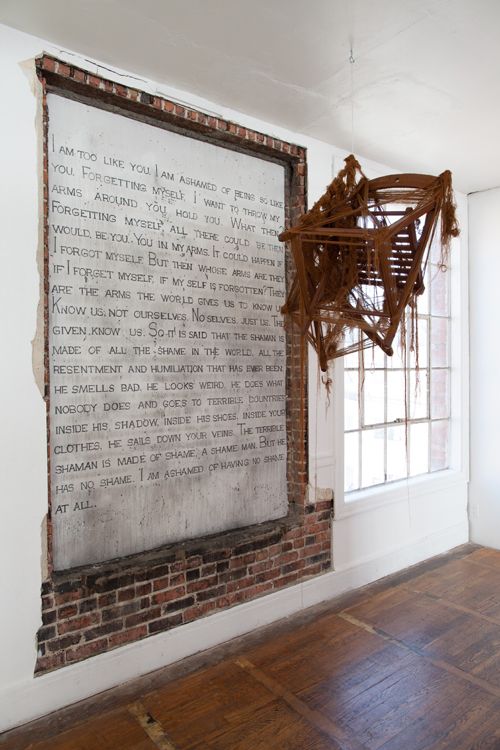 I AM TOO LIKE YOU. I AM ASHAMED OF BEING SO LIKE
YOU. FORGETTING MYSELF, I WANT TO THROW MY
ARMS AROUND YOU, HOLD YOU. WHAT THEN?
FORGETTING MYSELF ALL THERE COULD BE THEN
WOULD, BE YOU. YOU IN MY ARMS. IT COULD HAPPEN IF
I FORGOT MYSELF. BUT THEN WHOSE ARMS ARE THEY
IF I FORGET MYSELF, IF MY SELF IS FORGOTTEN? THEY
ARE THE ARMS THE WORLD GIVES US TO KNOW US
KNOW US, NOT OURSELVES. NO SELVES, JUST US. THE
GIVEN, KNOW US. SO IT IS SAID THAT THE SHAMAN IS
MADE OF ALL THE SHAME IN THE WORLD, ALL THE
RESENTMENT AND HUMILIATION THAT HAS EVER BEEN.
HE SMELLS BAD, HE LOOKS WEIRD, HE DOES WHAT
NOBODY DOES AND GOES TO TERRIBLE COUNTRIES
INSIDE HIS SHADOW, INSIDE HIS SHOES, INSIDE YOUR
CLOTHES, HE SAILS DOWN YOUR VEINS. THE TERRIBLE
SHAMAN IS MADE OF SHAME, A SHAME MAN. BUT HE
HAS NO SHAME. I AM ASHAMED OF HAVING NO SHAME
AT ALL.